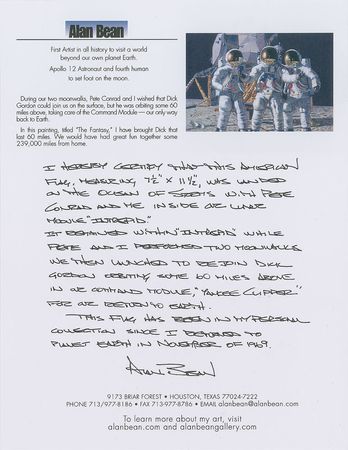 Alan Bean
First Artist in all history to visit a world
beyond our own planet Earth.
Apollo 12 Astronaut and fourth human
to set foot on the moon.
During our two moonwalks, Pete Conrad and I wished that Dick
Gordon could join us on the surface, but he was orbiting some 60
miles above, taking care of the Command Module — our only way
back to Earth.
In this painting, titled "The Fantasy," I have brought Dick that
last 60 miles. We would have had great fun together some
239,000 miles from home.
I HEREBY CERTIFY THAT THIS AMERICAN
FLAG, MEASURING, 7½" X 11½", WAS LANDED
ON THE OCEAN OF STORMS WITH PETE
CONRAD AND ME INSIDE OUR LUNAR
MODULE "INTREPID."
IT REMAINED WITHIN "INTREPID" WHILE
PETE AND I PERFORMED TWO MOONWALKS
WE THEN LAUNCHED TO REJOIN DICK
GORDON ORBITING SOME 60 MILES ABOVE
IN OUR COMMAND MODULE, "YANKEE CLIPPER"
FOR OUR RETURN TO EARTH.
THIS FLAG HAS BEEN IN MY PERSONAL
COLLECTION SINCE I RETURNED TO
PLANET EARTH IN NOVEMBER OF 1969.
ALAN BEAN
9173 BRIAR FOREST • HOUSTON, TEXAS 77024-7222
PHONE 713/977-8186 • FAX 713-977-8786 • EMAIL alanbean@alanbean.com
To learn more about my art, visit
alanbean.com and alanbeangallery.com